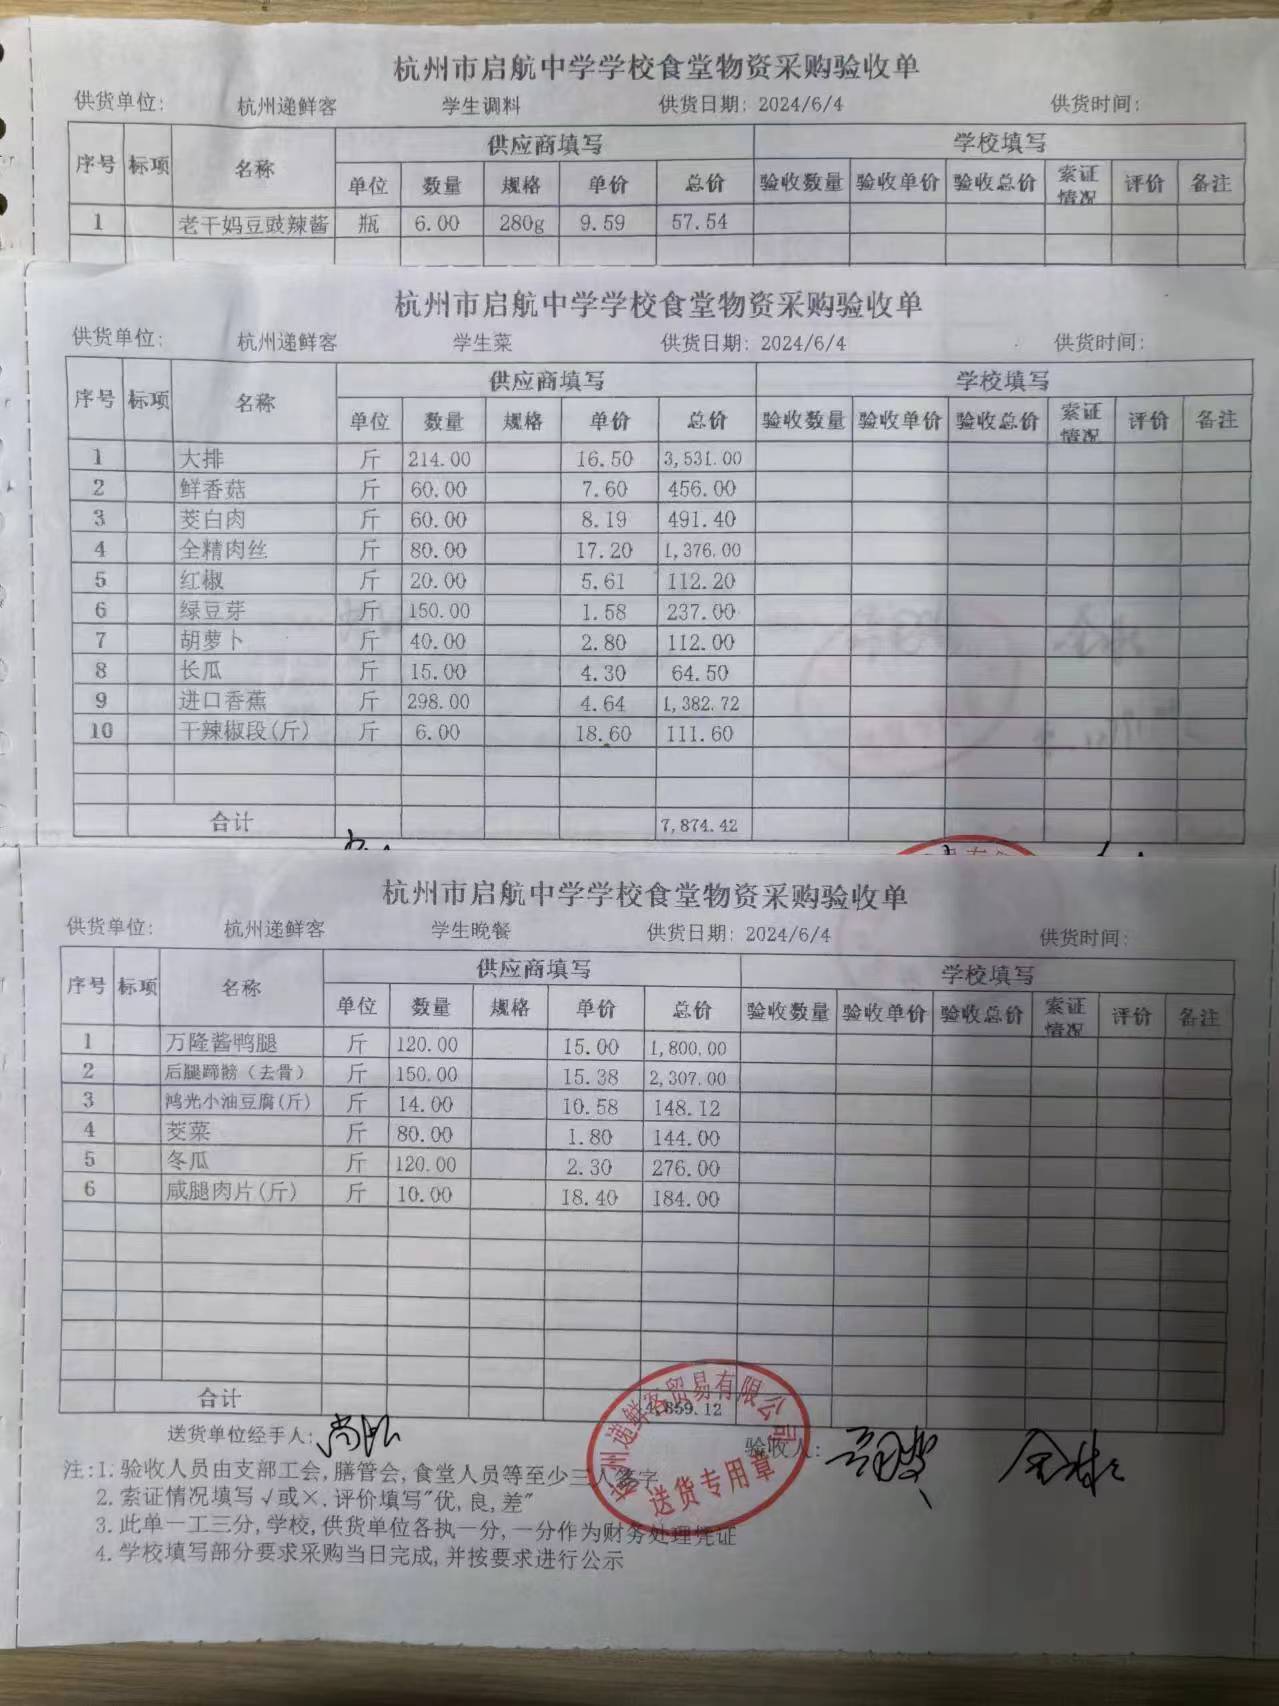 杭州市启航中学学校食堂物资采购验收单
供货单位: 杭州递鲜客 学生调料 供货日期: 2024/6/4 供货时间:
序号 标项 名称 供应商填写 学校填写
单位 数量 规格 单价 总价 验收数量 验收单价 验收总价 索证情况 评价 备注
1 老干妈豆豉辣酱 瓶 6.00 280g 9.59 57.54
杭州市启航中学学校食堂物资采购验收单
供货单位: 杭州递鲜客 学生菜 供货日期: 2024/6/4 供货时间:
序号 标项 名称 供应商填写 学校填写
单位 数量 规格 单价 总价 验收数量 验收单价 验收总价 索证情况 评价 备注
1 大排 斤 214.00 16.50 3,531.00
2 鲜香菇 斤 60.00 7.60 456.00
3 茭白肉 斤 60.00 8.19 491.40
4 全精肉丝 斤 80.00 17.20 1,376.00
5 红椒 斤 20.00 5.61 112.20
6 绿豆芽 斤 150.00 1.58 237.00
7 胡萝卜 斤 40.00 2.80 112.00
8 长瓜 斤 15.00 4.30 64.50
9 进口香蕉 斤 298.00 4.64 1,382.72
10 干辣椒段(斤) 斤 6.00 18.60 111.60
合计 7,874.42
杭州市启航中学学校食堂物资采购验收单
供货单位: 杭州递鲜客 学生晚餐 供货日期: 2024/6/4 供货时间:
序号 标项 名称 供应商填写 学校填写
单位 数量 规格 单价 总价 验收数量 验收单价 验收总价 索证情况 评价 备注
1 万隆酱鸭腿 斤 120.00 15.00 1,800.00
2 后腿蹄膀（去骨） 斤 150.00 15.38 2,307.00
3 鸿光小油豆腐(斤) 斤 14.00 10.58 148.12
4 茭菜 斤 80.00 1.80 144.00
5 冬瓜 斤 120.00 2.30 276.00
6 咸腿肉片(斤) 斤 10.00 18.40 184.00
合计 4,859.12
送货单位经手人: 验收人:
杭州递鲜客贸易有限公司
送货专用章
注:1.验收人员由支部工会,膳管会,食堂人员等至少三人签字
2.索证情况填写√或×.评价填写"优,良,差"
3.此单一工三分,学校,供货单位各执一分,一分作为财务处理凭证
4.学校填写部分要求采购当日完成,并按要求进行公示